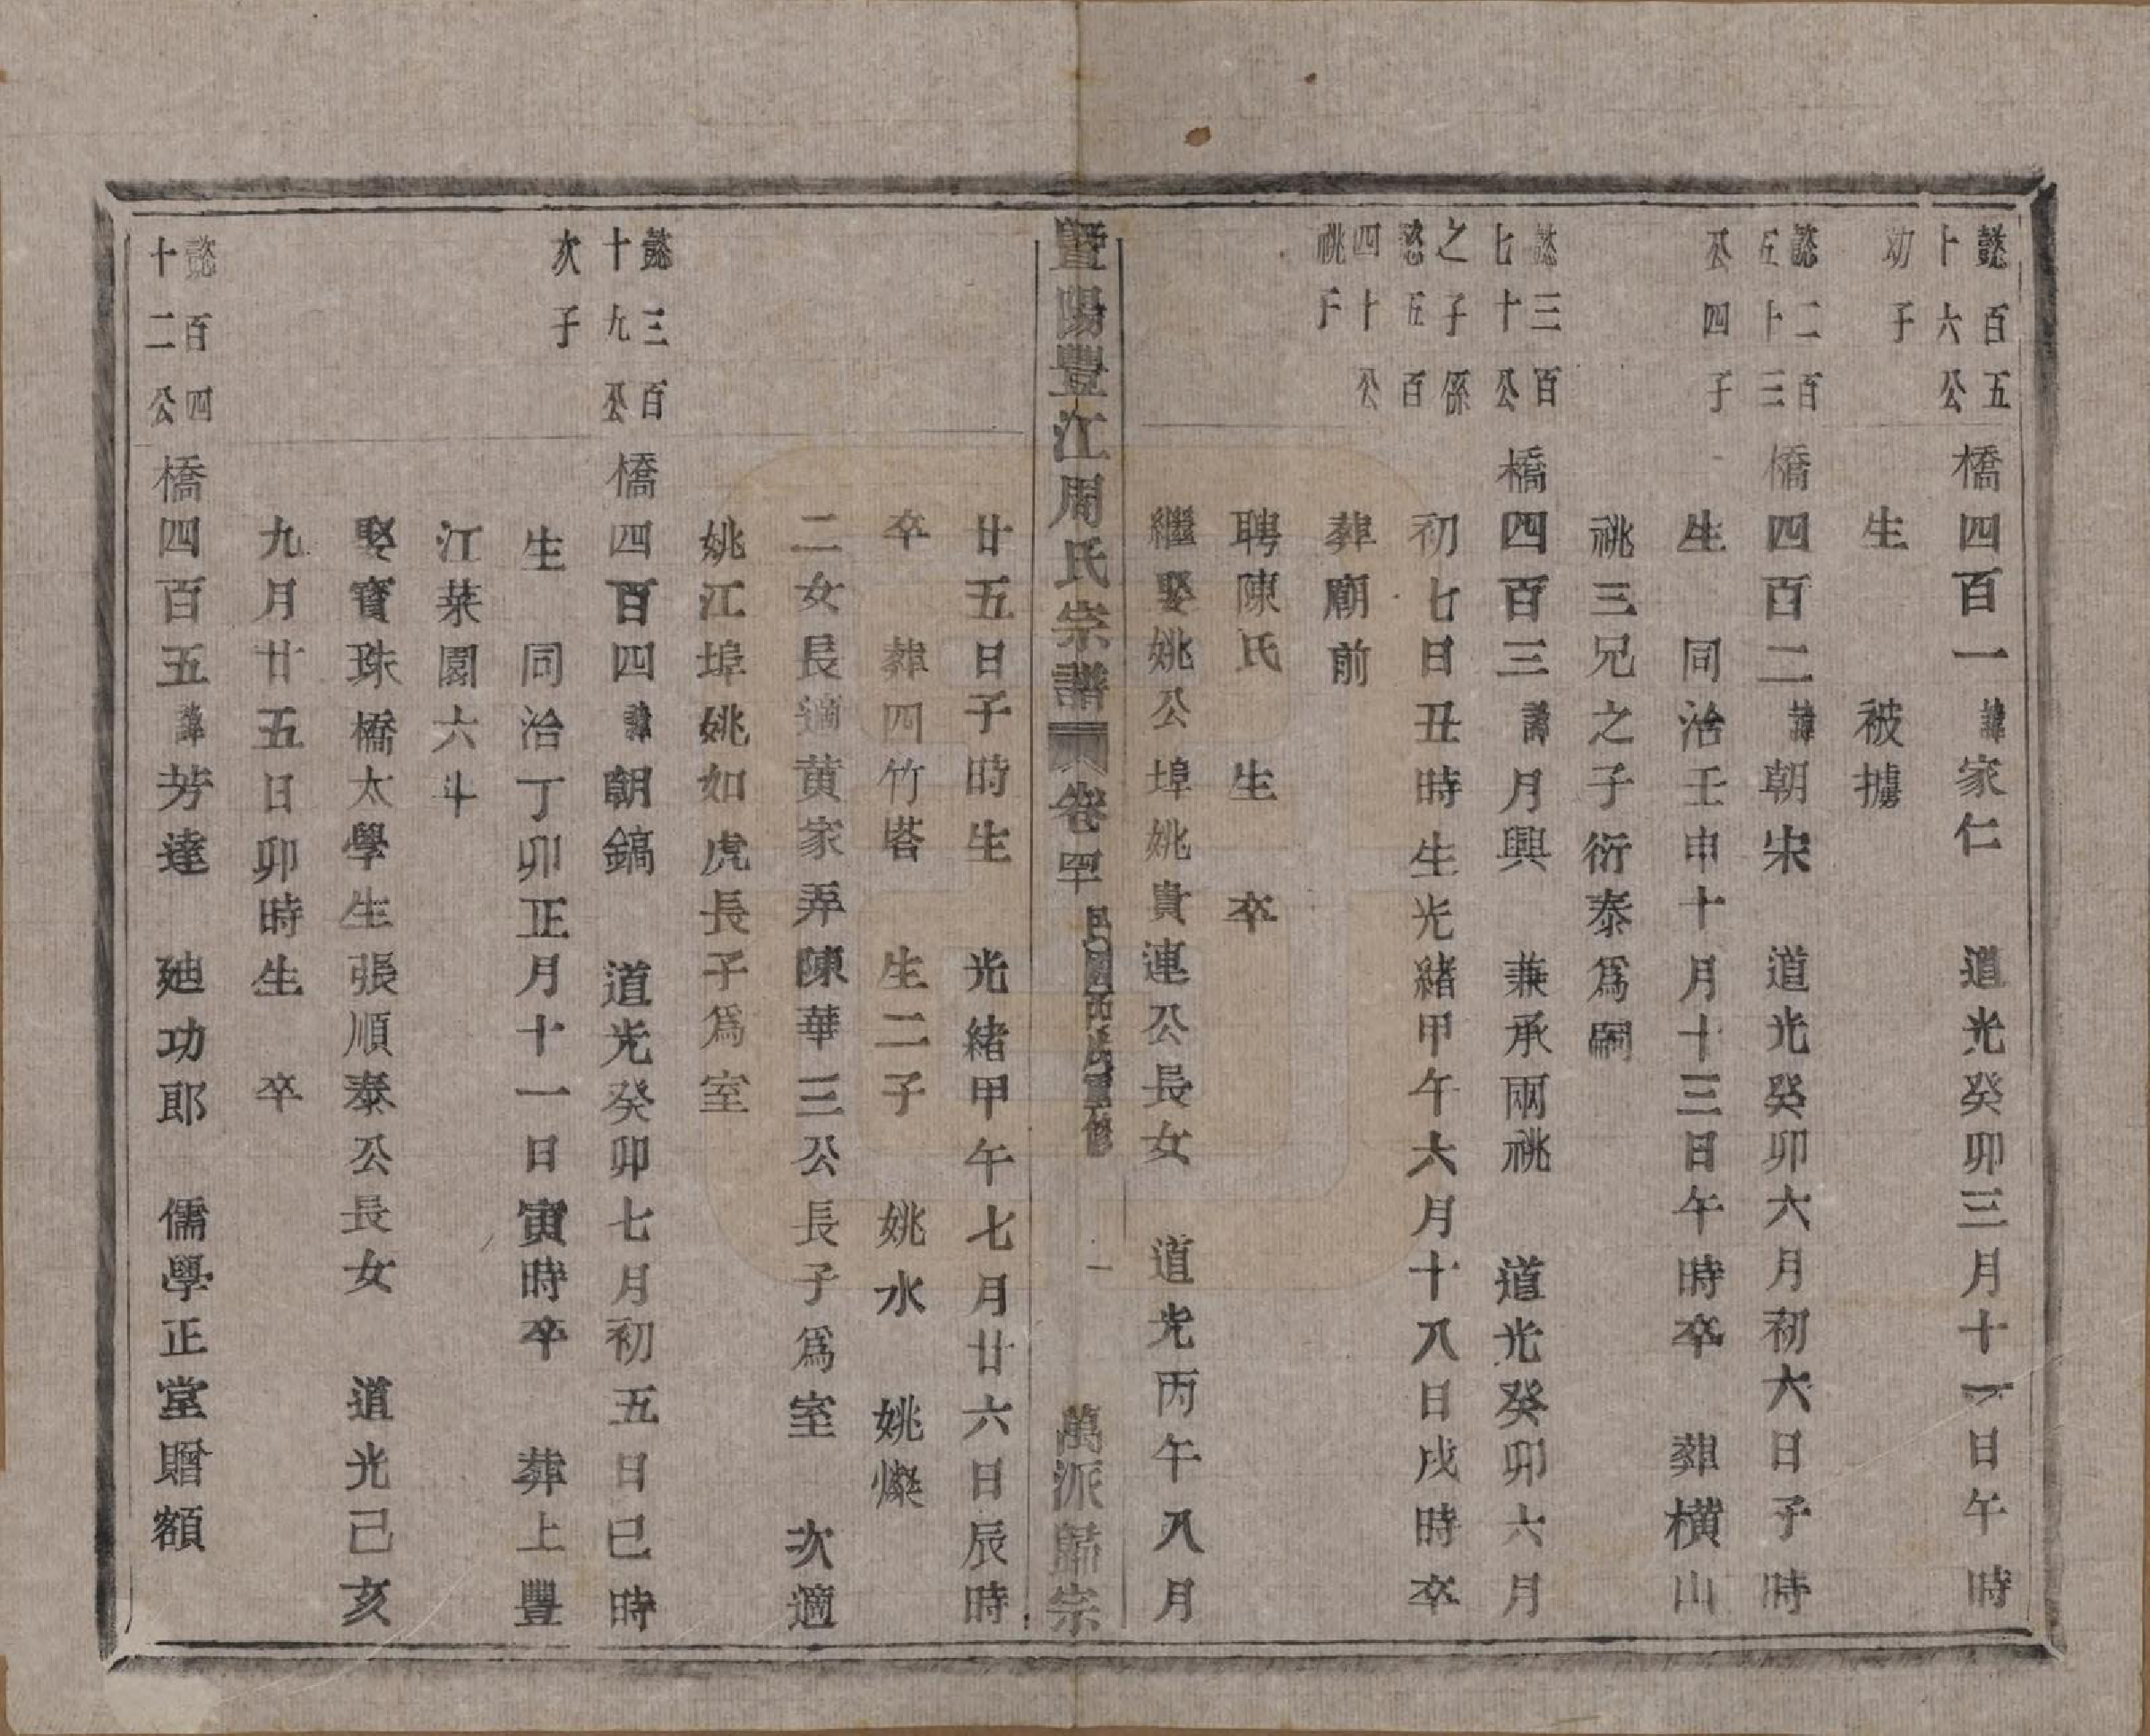 懿百五
十六公
幼子
橋四百一諱家仁　道光癸卯三月十一日午時
生　　被擄
懿二百
五十三
公四子
橋四百二諱朝宋　道光癸卯六月初六日子時
生　同治壬申十月十三日午時卒　葬橫山
祧三兄之子衍泰爲嗣
懿三百
七十公
之子係
懿五百
四十公
祧子
橋四百三諱月興　兼承兩祧　道光癸卯六月
初七日丑時生光緒甲午六月十八日戌時卒
葬廟前
聘陳氏　生　卒
繼娶姚公埠姚貴連公長女　道光丙午八月
暨陽豐江周氏宗譜　卷四十　民國　重修　一　萬派歸宗
廿五日子時生　光緒甲午七月廿六日辰時
卒　葬四竹塔　生二子　姚水　姚燦
二女長適黄家弄陳華三公長子爲室　次適
姚江埠姚如虎長子爲室
懿三百
十九公
次子
橋四百四諱朝鎬　道光癸卯七月初五日巳時
生　同治丁卯正月十一日寅時卒　葬上豐
江菜園六斗
娶寶珠橋太學生張順泰公長女　道光己亥
九月廿五日卯時生　卒
懿百四
十二公
橋四百五諱芳達　迪功郎　儒學正堂贈額